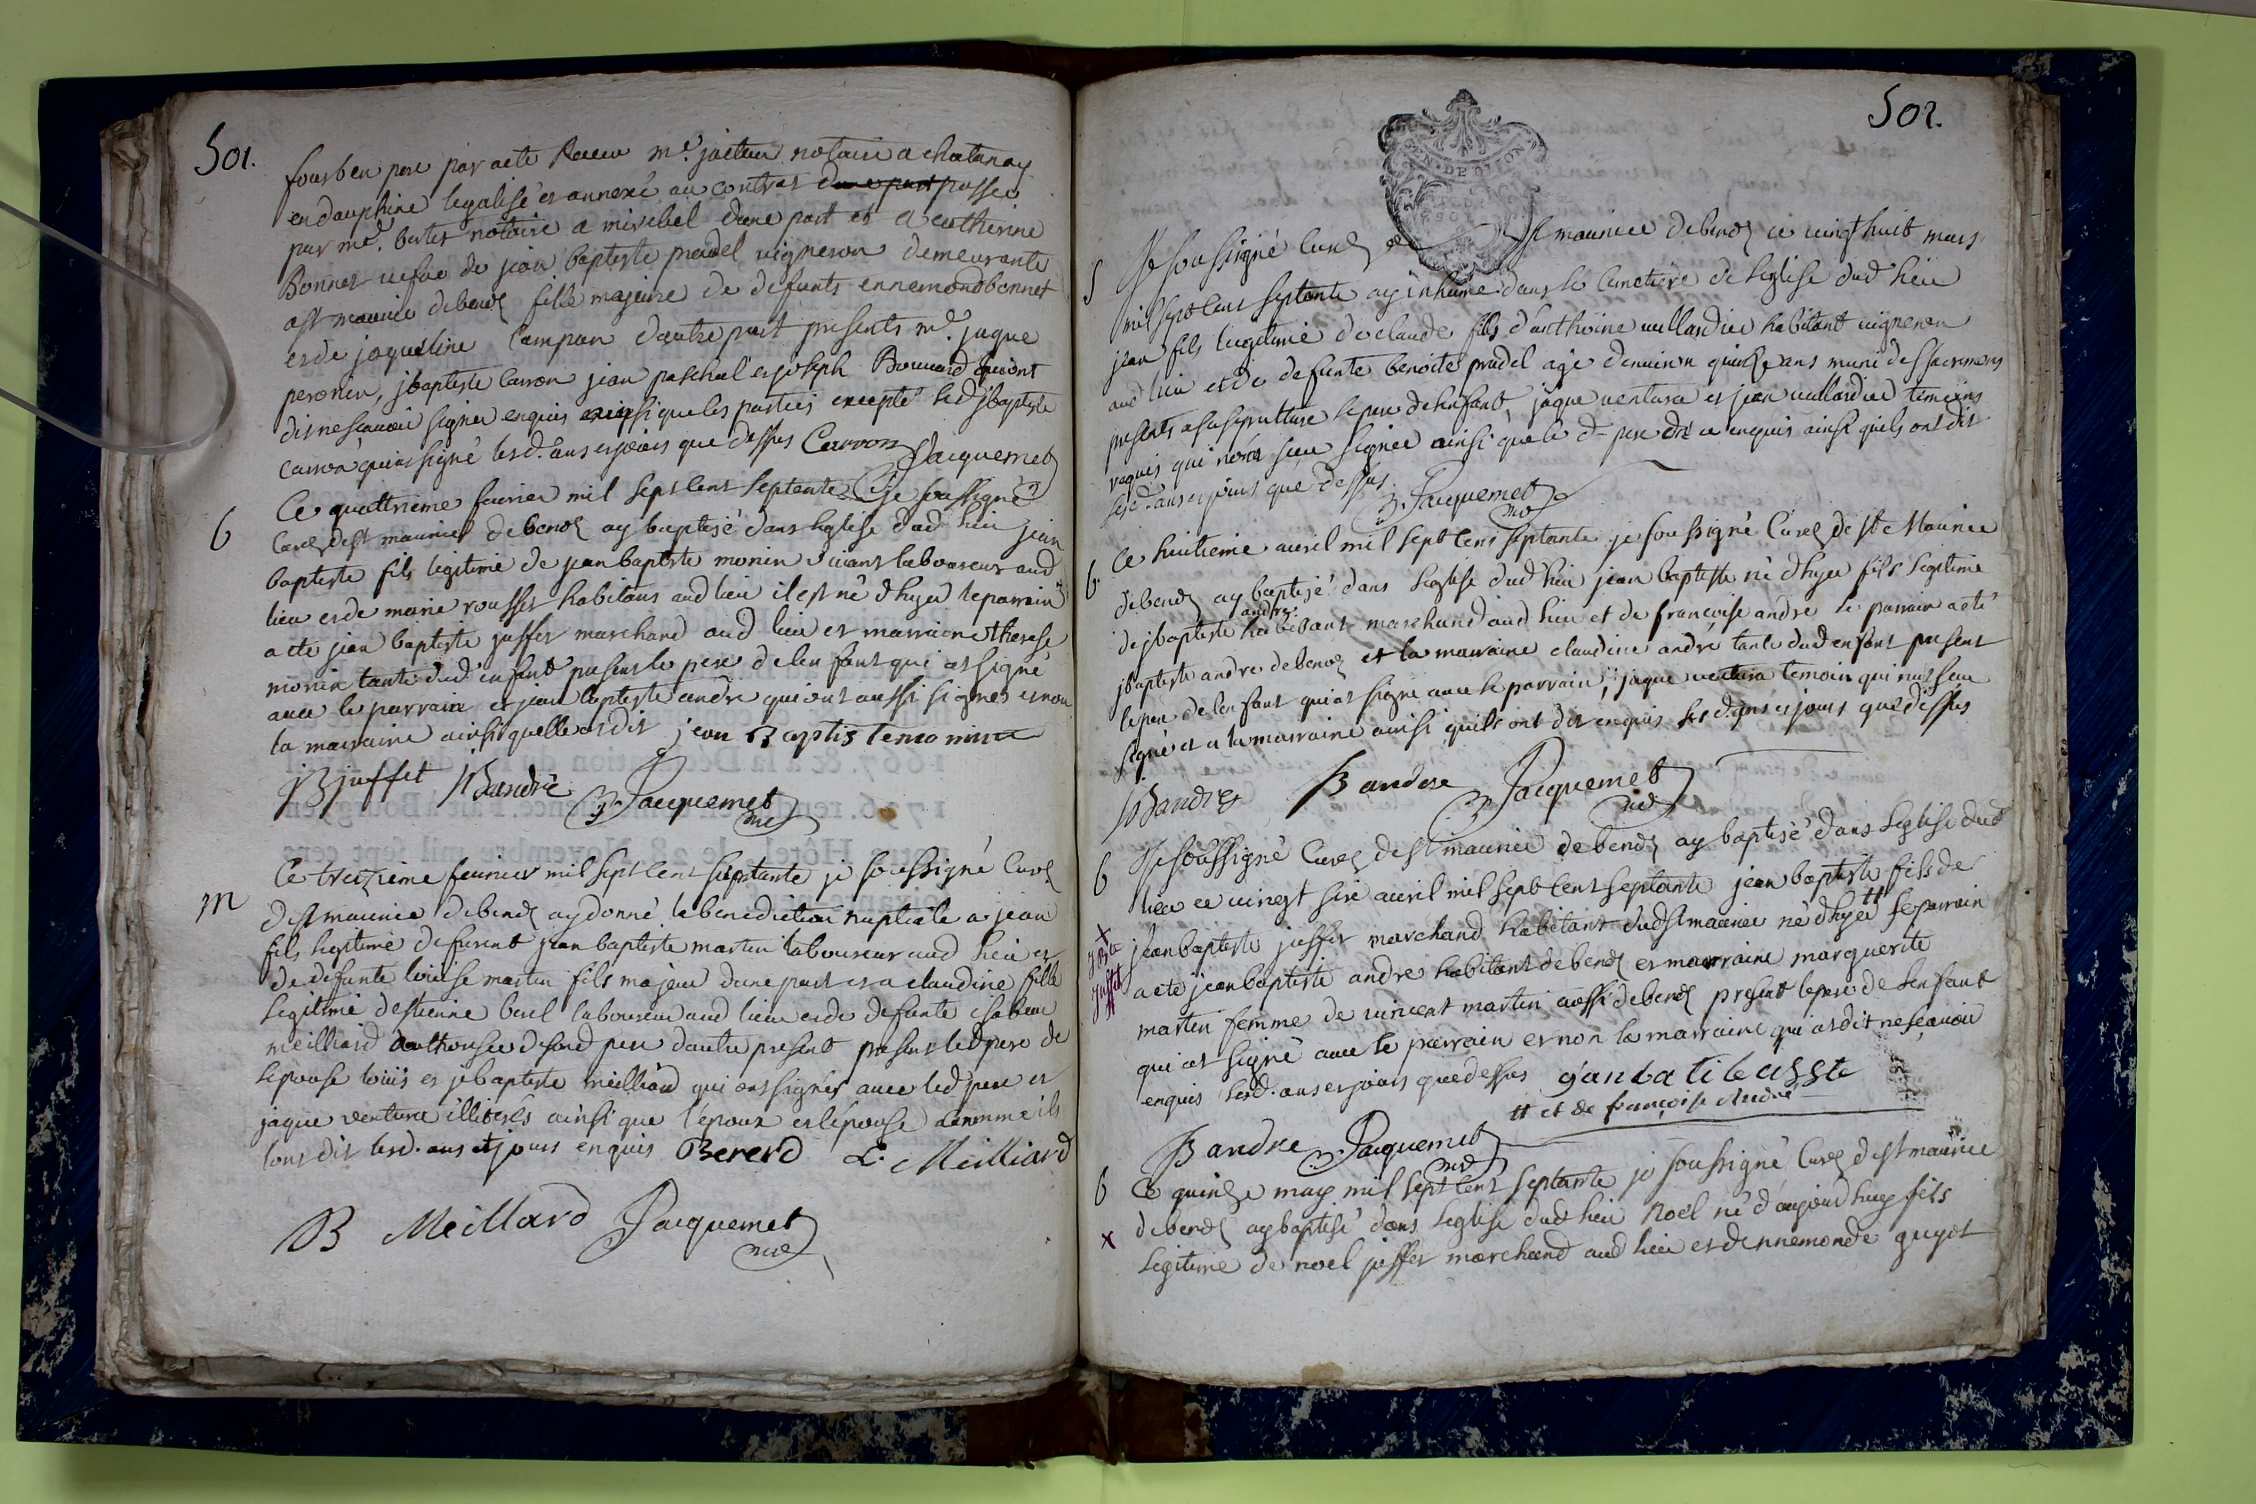 501.
fourben pere par acte Recu me. jacteur notaire a chatanay
en dauphine legalisé et annexé au contrat dune part passé
par me. bertet notaire a miribel dune part et a catherine
Bonnet vefve de jean baptiste pradel vigneron demeurante
a st maurice debenos fille majeure de defunts ennemond bonnet
et de jaqueline Campan dautre part presents me. jaque
peronin, jbaptiste Carron jean paschal et joseph Bouvard qui ont
dit ne scavoir signer enquis ainsi que les parties excepté led jbaptiste
Carron qui at signé lesd. ans et jours que dessus Carron Jacquemet
6
Ce quattrieme fevrier mil sept cent septente je soussigné
Curé de st maurice debenos ay baptisé dans leglise dud lieu jean
baptiste fils legitime de jean baptiste monin vivant laboureur aud
lieu et de marie rousset habitans aud lieu il est né dhyer le parrain
a eté jean baptiste juffet marchand aud lieu et marraine therese
monin tante dud enfant present le pere de lenfant qui at signé
avec le parrain et jean baptiste andre qui ont aussi signes et non
la marraine ainsi quelle at dit jean Baptiste monin
JB juffet JBandré Jacquemet
curé
m
Ce treizieme fevrier mil sept cent septante je soussigné Curé
d st maurice debenos ay donné la benediction nuptiale a jean
fils legitime defunt jean baptiste martin laboureur aud lieu et
de defunte louise martin fils majeur dune part et a claudine fille
legitime destienne berel laboureur aud lieu et de defunte isabeau
meilliard authorisee desond pere dautre present present led pere de
lepouse louis et jebaptiste meilliard qui ont signés avec led pere et
jaque ventura illiterés ainsi que lepoux et lépouse comme ils
lont dit lesd. ans et jours enquis Bererd L. Meilliard
B Meillard Jacquemet
curé
502.
GEN. DE DIJON
5
Je soussigné Curé de st maurice debenos ce vingt huit mars
mil sept cent septante ay inhumé dans le cimetiere de leglise dud lieu
jean fils legitime de claude fils danthoine vullardier habitant vigneron
aud lieu et de defunte benoite pradel agé denviron quinze ans muni des sacremens
presents a sa sepulture le pere de lenfant, jaque ventura et jean vullardier temoins
requis qui nont sceu signer ainsi que le d- pere de ce enquis ainsi quils ont dit
lesd. ans et jours que dessus. Jacquemet
curé
6.
Ce huitieme avril mil sept cent septante je soussigné Curé de st Maurice
debenos ay baptisé dans leglise dud lieu jean baptiste né dhyer fils legitime
andre
de jbaptiste habitant marchand aud lieu et de francoise andre le parrain a eté
jbaptiste andre debenos et la marraine claudine andre tante dud enfant present
le pere de lenfant qui at signé avec le parrain, jaque ventura temoin qui not sceu
signé et a la marraine ainsi quils ont dit enquis lesd. ans et jours que dessus
JBandre Bandre Jacquemet
curé
6
Je soussigné Curé de st maurice debenos ay baptisé dans leglise dud
lieu ce vingt sixe avril mil sept cent septante jean baptiste fils de
x
J Bte
Juffet
jean baptiste juffet marchand habitant dud st maurice né dhyer # le parrain
a eté jean baptiste andre habitant debenos et marraine marguerite
martin femme de vincent martin aussi debenos present le pere de lenfant
qui at signé avec le parrain et non la marraine qui at dit ne scavoir
enquis lesd. ans et jours que dessus
# et de françoise André
Bandre Jacquemet
curé
6
x
Ce quinze may mil sept cent septante je soussigné Curé d st maurice
debenos ay baptisé dans leglise dud lieu Noel né daujourdhuy fils
legitime de noel juffet marchand aud lieu et dennemonde guyot